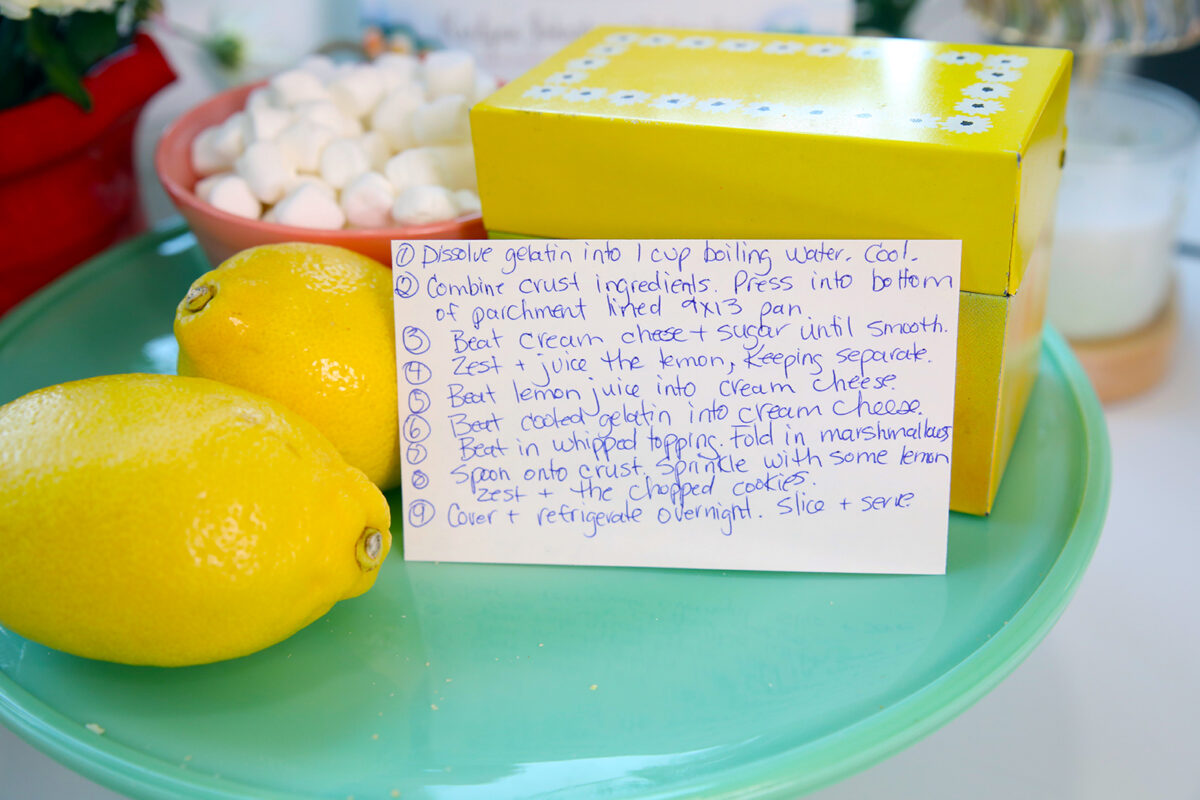 ① Dissolve gelatin into 1 cup boiling water. Cool.
② Combine crust ingredients. Press into bottom
of parchment lined 9x13 pan.
③ Beat cream cheese + sugar until smooth.
④ Zest + juice the lemon, keeping separate.
⑤ Beat lemon juice into cream cheese.
⑥ Beat cooled gelatin into cream cheese.
⑦ Beat in whipped topping. Fold in marshmallows
⑧ Spoon onto crust. Sprinkle with some lemon
zest + the chopped cookies.
⑨ Cover + refrigerate overnight. Slice + serve.